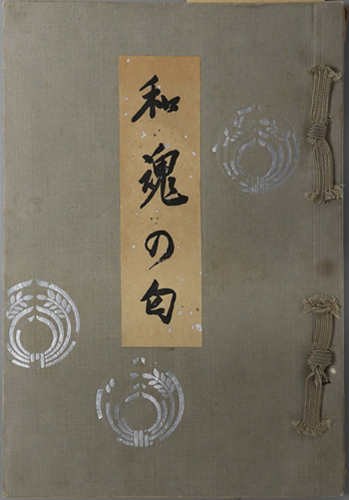 和魂の匂